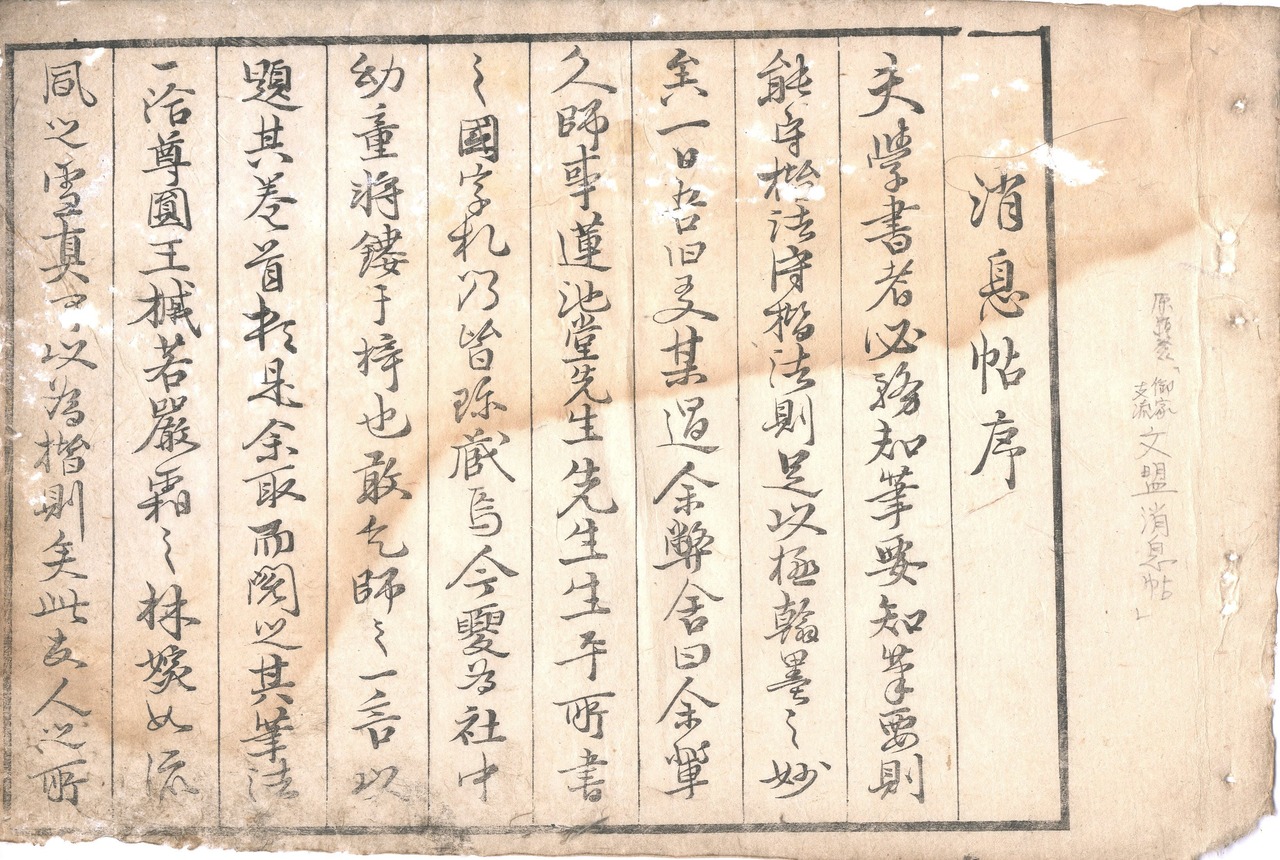 消息帖序
夫學書者必務知筆要知筆要則
能守楷法守楷法則足以極翰墨之妙
矣一日吾旧友某過余弊舍曰余輩
久師事蓮池堂先生先生生平所書
之國字札乃皆珎藏焉今夏為社中
幼童将鏤于梓也敢乞師之一言以
題其卷首於是余取而閲之其筆法
一洽尊圓王械若嚴霜之林嫋如流
風之雪真可以為楷則矣此友人之所
原題簽「御家支流文盟消息帖」